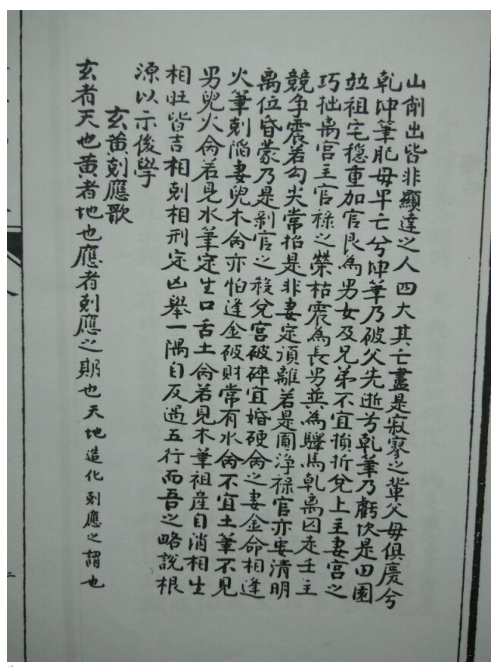 山削出皆非顯達之人四大其亡盡是寂寥之輩父母俱慶兮
乾坤筆肥母早亡兮坤筆乃破父先逝兮乾筆乃虧坎是田園
竝祖宅穩重加官艮為男女及兄弟不宜損折兌上主妻宮之
巧拙离宮主官祿之榮枯震為長男並為驛馬乹离囚走壬主
競争震若勾尖常招是非妻定須離若是圓淨祿官亦安清明
离位昏蒙乃是剝官之殺兌宮破碎宜婚硬命之妻金命相逢
火筆剋陷妻兜木命亦怕逢金被財常有水命不宜土筆不見
男兜火命若見水筆定生口舌土命若見木筆祖產自消相生
相旺皆吉相剋相刑定凶舉一隅自反遇五行而吾之略說根
源以示後學
玄黃剋應歌
玄者天也黃者地也應者剋應之期也天地造化剋應之謂也